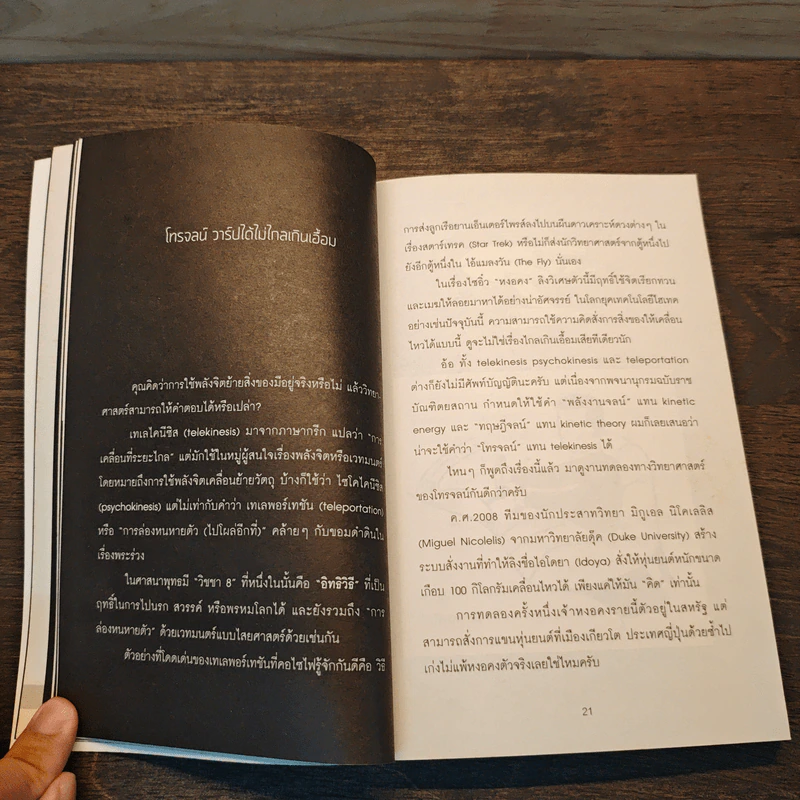 โทรจลน์ วาร์ปได้ไม่ไกลเกินเอื้อม
คุณคิดว่าการใช้พลังจิตย้ายสิ่งของมีอยู่จริงหรือไม่ แล้ววิทยา-
ศาสตร์สามารถให้คำตอบได้หรือเปล่า?
เทเลไคนีซิส (telekinesis) มาจากภาษากรีก แปลว่า “การ
เคลื่อนที่ระยะไกล” แต่มักใช้ในหมู่ผู้สนใจเรื่องพลังจิตหรือเวทมนตร์
โดยหมายถึงการใช้พลังจิตเคลื่อนย้ายวัตถุ บ้างก็ใช้ว่า ไซโคไคนีซิส
(psychokinesis) แต่ไม่เท่ากับคำว่า เทเลพอร์เทชัน (teleportation)
หรือ “การล่องหนหายตัว (ไปโผล่อีกที่)” คล้ายๆ กับขอมดำดินใน
เรื่องพระร่วง
ในศาสนาพุทธมี “วิชชา 8” ที่หนึ่งในนั้นคือ “อิทธิวิธี” ที่เป็น
ฤทธิ์ในการไปนรก สวรรค์ หรือพรหมโลกได้ และยังรวมถึง “การ
ล่องหนหายตัว” ด้วยเวทมนตร์แบบไสยศาสตร์ด้วยเช่นกัน
ตัวอย่างที่โดดเด่นของเทเลพอร์เทชันที่คอไซไฟรู้จักกันดีคือ วิธี
การส่งลูกเรือยานเอ็นเตอร์ไพรส์ลงไปบนผืนดาวเคราะห์ดวงต่างๆ ใน
เรื่องสตาร์เทรค (Star Trek) หรือไม่ก็ส่งนักวิทยาศาสตร์จากตู้หนึ่งไป
ยังอีกตู้หนึ่งใน ไอ้แมลงวัน (The Fly) นั่นเอง
ในเรื่องไซอิ๋ว “หงอคง” ลิงวิเศษตัวนี้มีฤทธิ์ใช้จิตเรียกทวน
และเมฆให้ลอยมาหาได้อย่างน่าอัศจรรย์ ในโลกยุคเทคโนโลยีไฮเทค
อย่างเช่นปัจจุบันนี้ ความสามารถใช้ความคิดสั่งการสิ่งของให้เคลื่อน
ไหวได้แบบนี้ ดูจะไม่ใช่เรื่องไกลเกินเอื้อมเสียทีเดียวนัก
อ้อ ทั้ง telekinesis psychokinesis และ teleportation
ต่างก็ยังไม่มีศัพท์บัญญัตินะครับ แต่เนื่องจากพจนานุกรมฉบับราช
บัณฑิตยสถาน กำหนดให้ใช้คำ “พลังงานจลน์” แทน kinetic
energy และ “ทฤษฎีจลน์” แทน kinetic theory ผมก็เลยเสนอว่า
น่าจะใช้คำว่า “โทรจลน์” แทน telekinesis ได้
ไหนๆ ก็พูดถึงเรื่องนี้แล้ว มาดูงานทดลองทางวิทยาศาสตร์
ของโทรจลน์กันดีกว่าครับ
ค.ศ.2008 ทีมของนักประสาทวิทยา มิกูเอล นิโคเลลิส
(Miguel Nicolelis) จากมหาวิทยาลัยดุ๊ค (Duke University) สร้าง
ระบบสั่งงานที่ทำให้ลิงชื่อไอโดยา (Idoya) สั่งให้หุ่นยนต์หนักขนาด
เกือบ 100 กิโลกรัมเคลื่อนไหวได้ เพียงแค่ให้มัน “คิด” เท่านั้น
การทดลองครั้งหนึ่งเจ้าหงอคงรายนี้ตัวอยู่ในสหรัฐ แต่
สามารถสั่งการแขนหุ่นยนต์ที่เมืองเกียวโต ประเทศญี่ปุ่นด้วยซ้ำไป
เก่งไม่แพ้หงอคงตัวจริงเลยใช่ไหมครับ
21